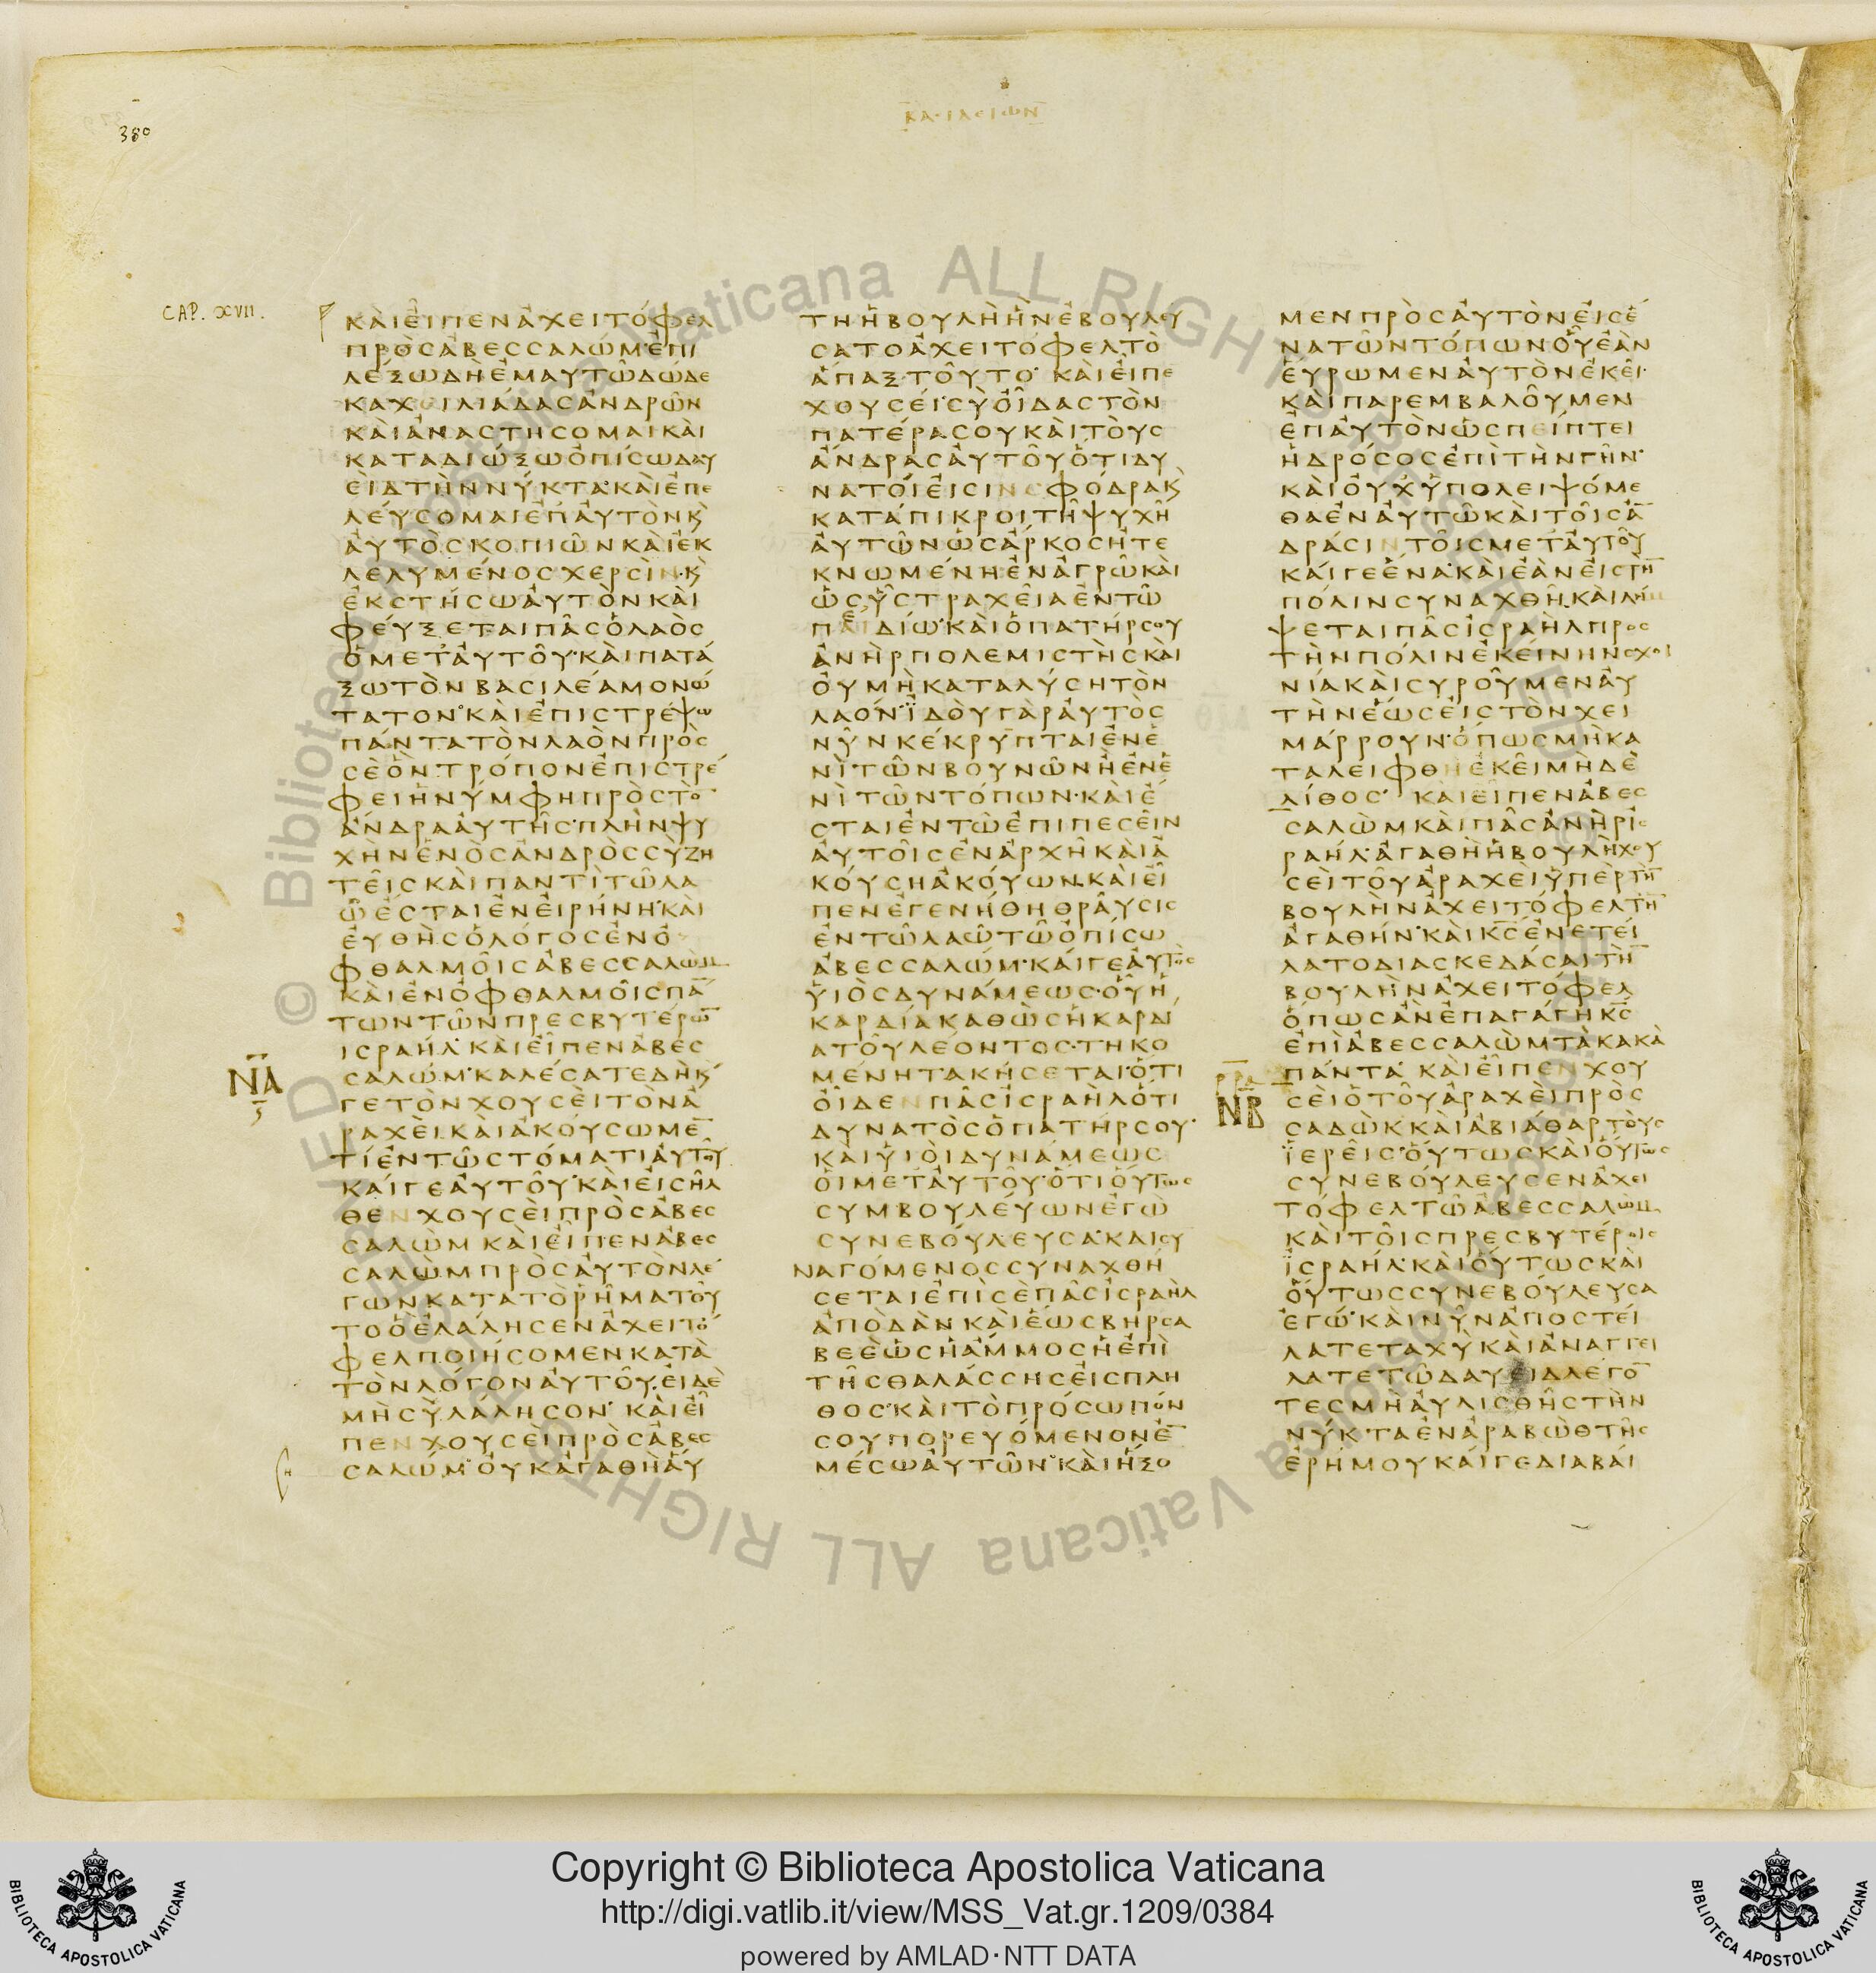 380
ΒΑΣΙΛΕΙΩΝ
CAP. XVII.
ΚΑΙΕΙΠΕΝΑΧΕΙΤΟΦΕΛ
ΠΡΟϹΑΒΕϹϹΑΛΩΜΕΠΙ
ΛΕΞΩΔΗΕΜΑΥΤΩΔΩΔΕ
ΚΑΧΕΙΛΙΑΔΑϹΑΝΔΡΩΝ
ΚΑΙΑΝΑϹΤΗϹΟΜΑΙΚΑΙ
ΚΑΤΑΔΙΩΞΩΟΠΙϹΩΔΑΥ
ΕΙΔΤΗΝΝΥΚΤΑ·ΚΑΙΕΠΕ
ΛΕΥϹΟΜΑΙΕΠΑΥΤΟΝΚ
ΑΥΤΟϹΚΟΠΙΩΝΚΑΙΕΚ
ΛΕΛΥΜΕΝΟϹΧΕΡϹΙΝ·Κ
ΕΚϹΤΗϹΩΑΥΤΟΝΚΑΙ
ΦΕΥΞΕΤΑΙΠΑϹΟΛΑΟϹ
ΟΜΕΤΑΥΤΟΥ·ΚΑΙΠΑΤΑ
ΞΩΤΟΝΒΑϹΙΛΕΑΜΟΝΩ
ΤΑΤΟΝ·ΚΑΙΕΠΙϹΤΡΕΨΩ
ΠΑΝΤΑΤΟΝΛΑΟΝΠΡΟϹ
ϹΕΟΝΤΡΟΠΟΝΕΠΙϹΤΡΕ
ΦΕΙΗΝΥΜΦΗΠΡΟϹΤΟ
ΑΝΔΡΑΑΥΤΗϹ·ΠΛΗΝΨΥ
ΧΗΝΕΝΟϹΑΝΔΡΟϹϹΥΖΗ
ΤΕΙϹΚΑΙΠΑΝΤΙΤΩΛΑ
ΩΕϹΤΑΙΕΝΕΙΡΗΝΗ·ΚΑΙ
ΕΥΘΗϹΟΛΟΓΟϹΕΝΟ
ΦΘΑΛΜΟΙϹΑΒΕϹϹΑΛΩΜ
ΚΑΙΕΝΟΦΘΑΛΜΟΙϹΠΑ
ΤΩΝΤΩΝΠΡΕϹΒΥΤΕΡΩ
ΙϹΡΑΗΛ·ΚΑΙΕΙΠΕΝΑΒΕϹ
ΝΑ
ϹΑΛΩΜ·ΚΑΛΕϹΑΤΕΔΗΚ
ΓΕΤΟΝΧΟΥϹΕΙΤΟΝΑ
ΡΑΧΕΙ·ΚΑΙΑΚΟΥϹΩΜΕ
ΤΙΕΝΤΩϹΤΟΜΑΤΙΑΥΤΟΥ
ΚΑΙΓΕΑΥΤΟΥ·ΚΑΙΕΙϹΗΛ
ΘΕΝΧΟΥϹΕΙΠΡΟϹΑΒΕϹ
ϹΑΛΩΜΚΑΙΕΙΠΕΝΑΒΕϹ
ϹΑΛΩΜΠΡΟϹΑΥΤΟΝΛΕ
ΓΩΝΚΑΤΑΤΟΡΗΜΑΤΟΥ
ΤΟΟΕΛΑΛΗϹΕΝΑΧΕΙΤΟ
ΦΕΛΠΟΙΗϹΟΜΕΝΚΑΤΑ
ΤΟΝΛΟΓΟΝΑΥΤΟΥ·ΕΙΔΕ
ΜΗϹΥΛΑΛΗϹΟΝ·ΚΑΙΕΙ
ΠΕΝΧΟΥϹΕΙΠΡΟϹΑΒΕϹ
ϹΑΛΩΜ·ΟΥΚΑΓΑΘΗΑΥ
ΤΗΗΒΟΥΛΗΗΝΕΒΟΥΛΕΥ
ϹΑΤΟΑΧΕΙΤΟΦΕΛΤΟ
ΑΠΑΞΤΟΥΤΟ·ΚΑΙΕΙΠΕ
ΧΟΥϹΕΙ·ϹΥΟΙΔΑϹΤΟΝ
ΠΑΤΕΡΑϹΟΥΚΑΙΤΟΥϹ
ΑΝΔΡΑϹΑΥΤΟΥΟΤΙΔΥ
ΝΑΤΟΙΕΙϹΙΝϹΦΟΔΡΑΚ
ΚΑΤΑΠΙΚΡΟΙΤΗΨΥΧΗ
ΑΥΤΩΝΩϹΑΡΚΟϹΗΤΕ
ΚΝΩΜΕΝΗΕΝΑΓΡΩΚΑΙ
ΩϹΥϹΤΡΑΧΕΙΑΕΝΤΩ
ΠΑΙΔΙΩ·ΚΑΙΟΠΑΤΗΡϹΟΥ
ΑΝΗΡΠΟΛΕΜΙϹΤΗϹΚΑΙ
ΟΥΜΗΚΑΤΑΛΥϹΗΤΟΝ
ΛΑΟΝ·ΪΔΟΥΓΑΡΑΥΤΟϹ
ΝΥΝΚΕΚΡΥΠΤΑΙΕΝΕ
ΝΙΤΩΝΒΟΥΝΩΝΗΕΝΕ
ΝΙΤΩΝΤΟΠΩΝ·ΚΑΙΕ
ϹΤΑΙΕΝΤΩΕΠΙΠΕϹΕΙΝ
ΑΥΤΟΙϹΕΝΑΡΧΗΚΑΙΑ
ΚΟΥϹΗΑΚΟΥΩΝΚΑΙΕΙ
ΠΕΝΕΓΕΝΗΘΗΘΡΑΥϹΙϹ
ΕΝΤΩΛΑΩΤΩΟΠΙϹΩ
ΑΒΕϹϹΑΛΩΜ·ΚΑΙΓΕΑΥΤΟϹ
ΥΙΟϹΔΥΝΑΜΕΩϹ·ΟΥΗ
ΚΑΡΔΙΑΚΑΘΩϹΗΚΑΡΔΙ
ΑΤΟΥΛΕΟΝΤΟϹ·ΤΗΚΟ
ΜΕΝΗΤΑΚΗϹΕΤΑΙ·ΟΤΙ
ΟΙΔΕΝΠΑϹΙϹΡΑΗΛΟΤΙ
ΔΥΝΑΤΟϹΟΠΑΤΗΡϹΟΥ·
ΚΑΙΥΙΟΙΔΥΝΑΜΕΩϹ
ΟΙΜΕΤΑΥΤΟΥ·ΟΤΙΟΥΤΩϹ
ϹΥΜΒΟΥΛΕΥΩΝΕΓΩ
ϹΥΝΕΒΟΥΛΕΥϹΑ·ΚΑΙϹΥ
ΝΑΓΟΜΕΝΟϹϹΥΝΑΧΘΗ
ϹΕΤΑΙΕΠΙϹΕΠΑϹΙϹΡΑΗΛ
ΑΠΟΔΑΝΚΑΙΕΩϹΒΗΡϹΑ
ΒΕΕΩϹΗΑΜΜΟϹΗΕΠΙ
ΤΗϹΘΑΛΑϹϹΗϹΕΙϹΠΛΗ
ΘΟϹ·ΚΑΙΤΟΠΡΟϹΩΠΟΝ
ϹΟΥΠΟΡΕΥΟΜΕΝΟΝΕ
ΜΕϹΩΑΥΤΩΝ·ΚΑΙΗΞΟ
ΜΕΝΠΡΟϹΑΥΤΟΝΕΙϹΕ
ΝΑΤΩΝΤΟΠΩΝΟΥΕΑΝ
ΕΥΡΩΜΕΝΑΥΤΟΝΕΚΕΙ·
ΚΑΙΠΑΡΕΜΒΑΛΟΥΜΕΝ
ΕΠΑΥΤΟΝΩϹΠΕΙΠΤΕΙ
ΗΔΡΟϹΟϹΕΠΙΤΗΝΓΗΝ·
ΚΑΙΟΥΧΥΠΟΛΕΙΨΟΜΕ
ΘΑΕΝΑΥΤΩΚΑΙΤΟΙϹΑ
ΔΡΑϹΙΝΤΟΙϹΜΕΤΑΥΤΟΥ
ΚΑΙΓΕΕΝΑ·ΚΑΙΕΑΝΕΙϹΤΗ
ΠΟΛΙΝϹΥΝΑΧΘΗ·ΚΑΙΛΗΜ
ΨΕΤΑΙΠΑϹΙϹΡΑΗΛΠΡΟϹ
ΤΗΝΠΟΛΙΝΕΚΕΙΝΗΝϹΧΟΙ
ΝΙΑΚΑΙϹΥΡΟΥΜΕΝΑΥ
ΤΗΝΕΩϹΕΙϹΤΟΝΧΕΙ
ΜΑΡΡΟΥΝ·ΟΠΩϹΜΗΚΑ
ΤΑΛΕΙΦΘΗΕΚΕΙΜΗΔΕ
ΛΙΘΟϹ·ΚΑΙΕΙΠΕΝΑΒΕϹ
ϹΑΛΩΜΚΑΙΠΑϹΑΝΗΡΙϹ
ΡΑΗΛ·ΑΓΑΘΗΗΒΟΥΛΗΧΟΥ
ϹΕΙΤΟΥΑΡΑΧΕΙΥΠΕΡΤΗ
ΒΟΥΛΗΝΑΧΕΙΤΟΦΕΛΤΗ
ΑΓΑΘΗΝ·ΚΑΙΚϹΕΝΕΤΕΙ
ΛΑΤΟΔΙΑϹΚΕΔΑϹΑΙΤΗ
ΒΟΥΛΗΝΑΧΕΙΤΟΦΕΛ
ΟΠΩϹΑΝΕΠΑΓΑΓΗΚϹ
ΕΠΙΑΒΕϹϹΑΛΩΜΤΑΚΑΚΑ
ΠΑΝΤΑ·ΚΑΙΕΙΠΕΝΧΟΥ
ΝΒ
ϹΕΙΟΤΟΥΑΡΑΧΕΙΠΡΟϹ
ϹΑΔΩΚΚΑΙΑΒΙΑΘΑΡΤΟΥϹ
ΪΕΡΕΙϹ·ΟΥΤΩϹΚΑΙΟΥΤΩϹ
ϹΥΝΕΒΟΥΛΕΥϹΕΝΑΧΕΙ
ΤΟΦΕΛΤΩΑΒΕϹϹΑΛΩΜ
ΚΑΙΤΟΙϹΠΡΕϹΒΥΤΕΡΟΙϹ
ΪϹΡΑΗΛ·ΚΑΙΟΥΤΩϹΚΑΙ
ΟΥΤΩϹϹΥΝΕΒΟΥΛΕΥϹΑ
ΕΓΩ·ΚΑΙΝΥΝΑΠΟϹΤΕΙ
ΛΑΤΕΤΑΧΥΚΑΙΑΝΑΓΓΕΙ
ΛΑΤΕΤΩΔΑΥΕΙΔΛΕΓΟ
ΤΕϹΜΗΑΥΛΙϹΘΗϹΤΗΝ
ΝΥΚΤΑΕΝΑΡΑΒΩΘΤΗϹ
ΕΡΗΜΟΥΚΑΙΓΕΔΙΑΒΑΙ
Biblioteca Apostolica Vaticana ALL RIGHTS RESERVED ©
Copyright © Biblioteca Apostolica Vaticana
http://digi.vatlib.it/view/MSS_Vat.gr.1209/0384
powered by AMLAD·NTT DATA
BIBLIOTECA APOSTOLICA VATICANA
BIBLIOTECA APOSTOLICA VATICANA